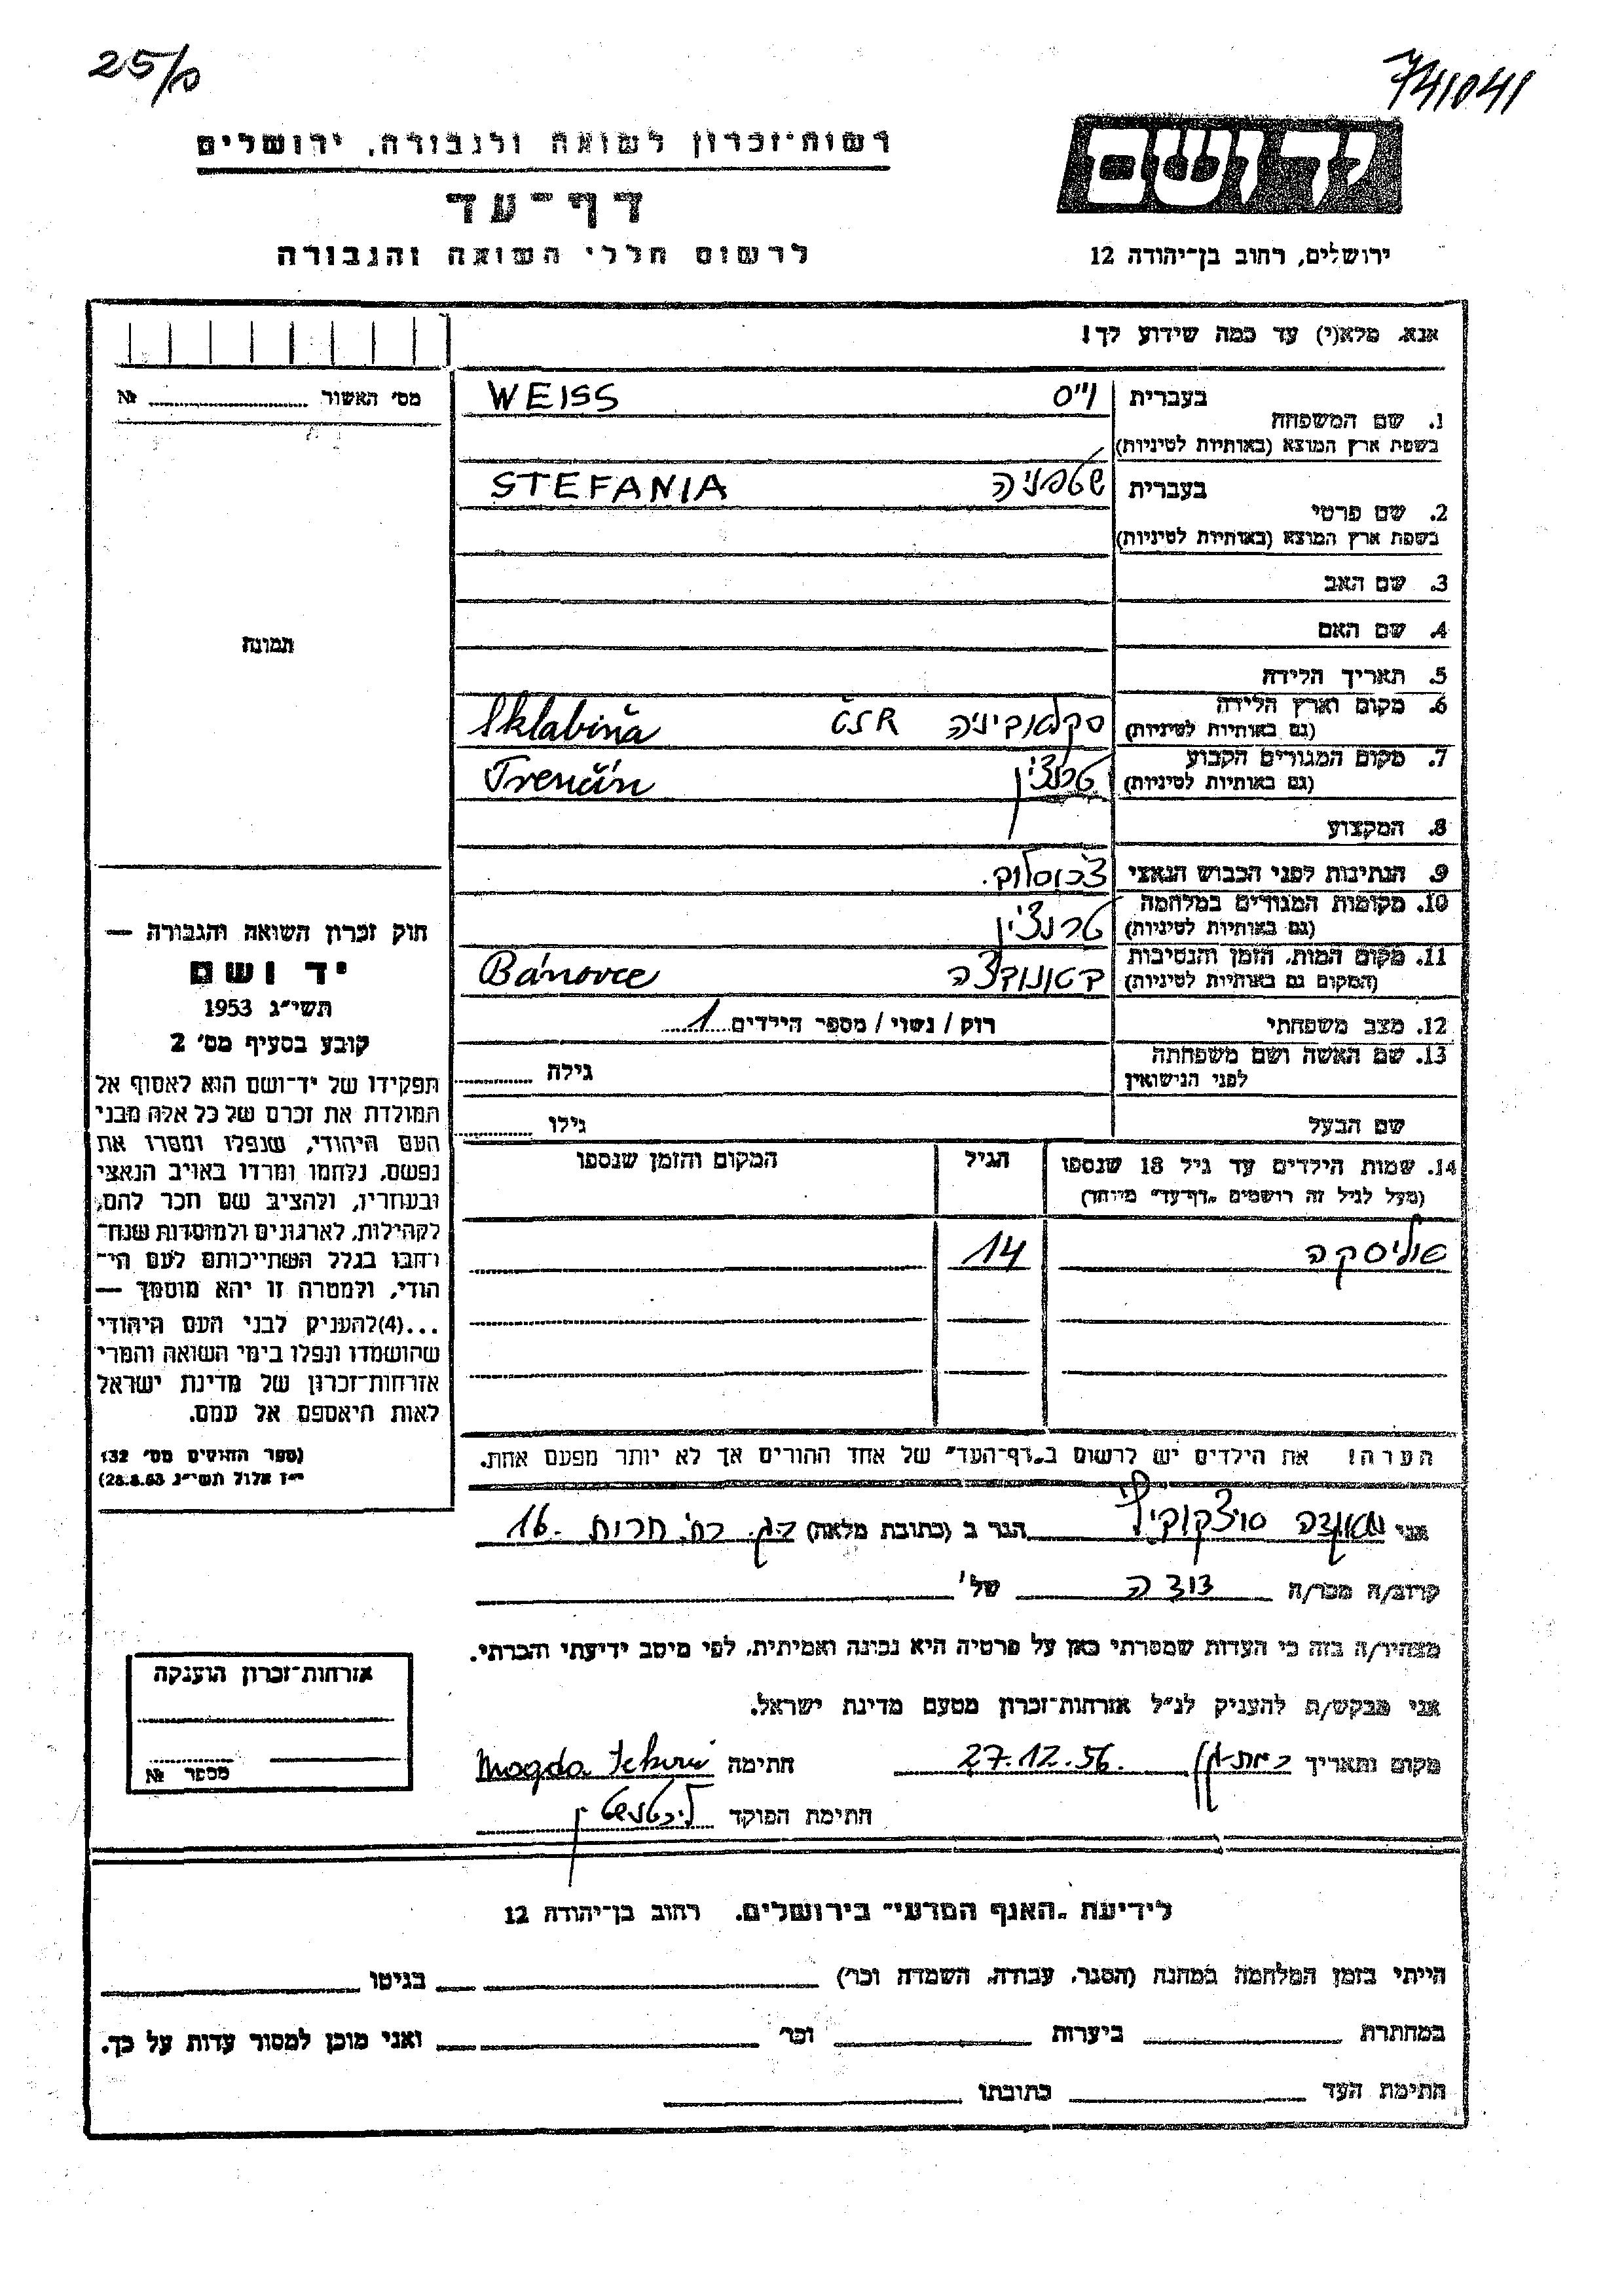 25/ס
741041
יד ושם
רשות־זכרון לשואה ולגבורה, ירושלים
דף־עד
לרשום חללי השואה והגבורה
ירושלים, רחוב בן־יהודה 12
אנא, מלא(י) עד כמה שידוע לך!
מס׳ האשור № 
תמונה
1. שם המשפחה
בעברית וייס WEISS
בשפת ארץ המוצא (באותיות לטיניות)
2. שם פרטי
בעברית שטפניה STEFANIA
בשפת ארץ המוצא (באותיות לטיניות)
3. שם האב
4. שם האם
5. תאריך הלידה
6. מקום וארץ הלידה סקלאביניה ČSR Sklabiňa
(גם באותיות לטיניות)
7. מקום המגורים הקבוע טרנצ׳ין Trenčín
(גם באותיות לטיניות)
8. המקצוע
9. הנתינות לפני הכבוש הנאצי צ׳כוסלוב.
10. מקומות המגורים במלחמה טרנצ׳ין
(גם באותיות לטיניות)
11. מקום המות, הזמן והנסיבות Bánovce
(המקום גם באותיות לטיניות)
12. מצב משפחתי רוק / נשוי / מספר הילדים 1
13. שם האשה ושם משפחתה
לפני הנישואין גילה
שם הבעל גילו
14. שמות הילדים עד גיל 18 שנספו הגיל המקום והזמן שנספו
(מעל לגיל זה רושמים „דף־עד״ מיוחד)
14
הערה! את הילדים יש לרשום ב„דף־העד״ של אחד ההורים אך לא יותר מפעם אחת.
חוק זכרון השואה והגבורה —
יד ושם
תשי״ג 1953
קובע בסעיף מס׳ 2
תפקידו של יד־ושם הוא לאסוף אל
המולדת את זכרם של כל אלה מבני
העם היהודי, שנפלו ומסרו את
נפשם, נלחמו ומרדו באויב הנאצי
ובעוזריו, ולהציב שם וזכר להם,
לקהילות, לארגונים ולמוסדות שנח־
רחבו בגלל השתייכותם לעם הי־
הודי, ולמטרה זו יהא מוסמך —
...(4)להעניק לבני העם היהודי
שהושמדו ונפלו בימי השואה והמרי
אזרחות־זכרון של מדינת ישראל
לאות היאספם אל עמם.
(ספר החוקים מס׳ 132
י״ז אלול תשי״ג 28.8.53)
אני הגר ב (כתובת מלאה) ר.ג. רח׳ חרות 16.
קרוב/ה מכר/ה דודה של
מצהיר/ה בזה כי העדות שמסרתי כאן על פרטיה היא נכונה ואמיתית, לפי מיטב ידיעתי והכרתי.
אני מבקש/ת להעניק לנ״ל אזרחות־זכרון מטעם מדינת ישראל.
מקום ותאריך רמת-גן 27.12.56. חתימה Magda
חתימת הפוקד
אזרחות־זכרון הוענקה
מספר №
לידיעת „האגף המדעי״ בירושלים, רחוב בן־יהודה 12
הייתי בזמן המלחמה במחנה (הסגר, עבודה, השמדה וכר׳) בגיטו
במחתרת ביערות וכר׳ ואני מוכן למסור עדות על כך.
חתימת העד כתובתו